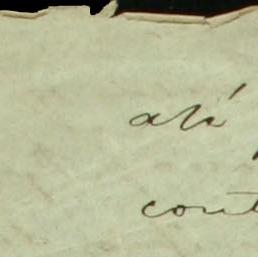 até
cont